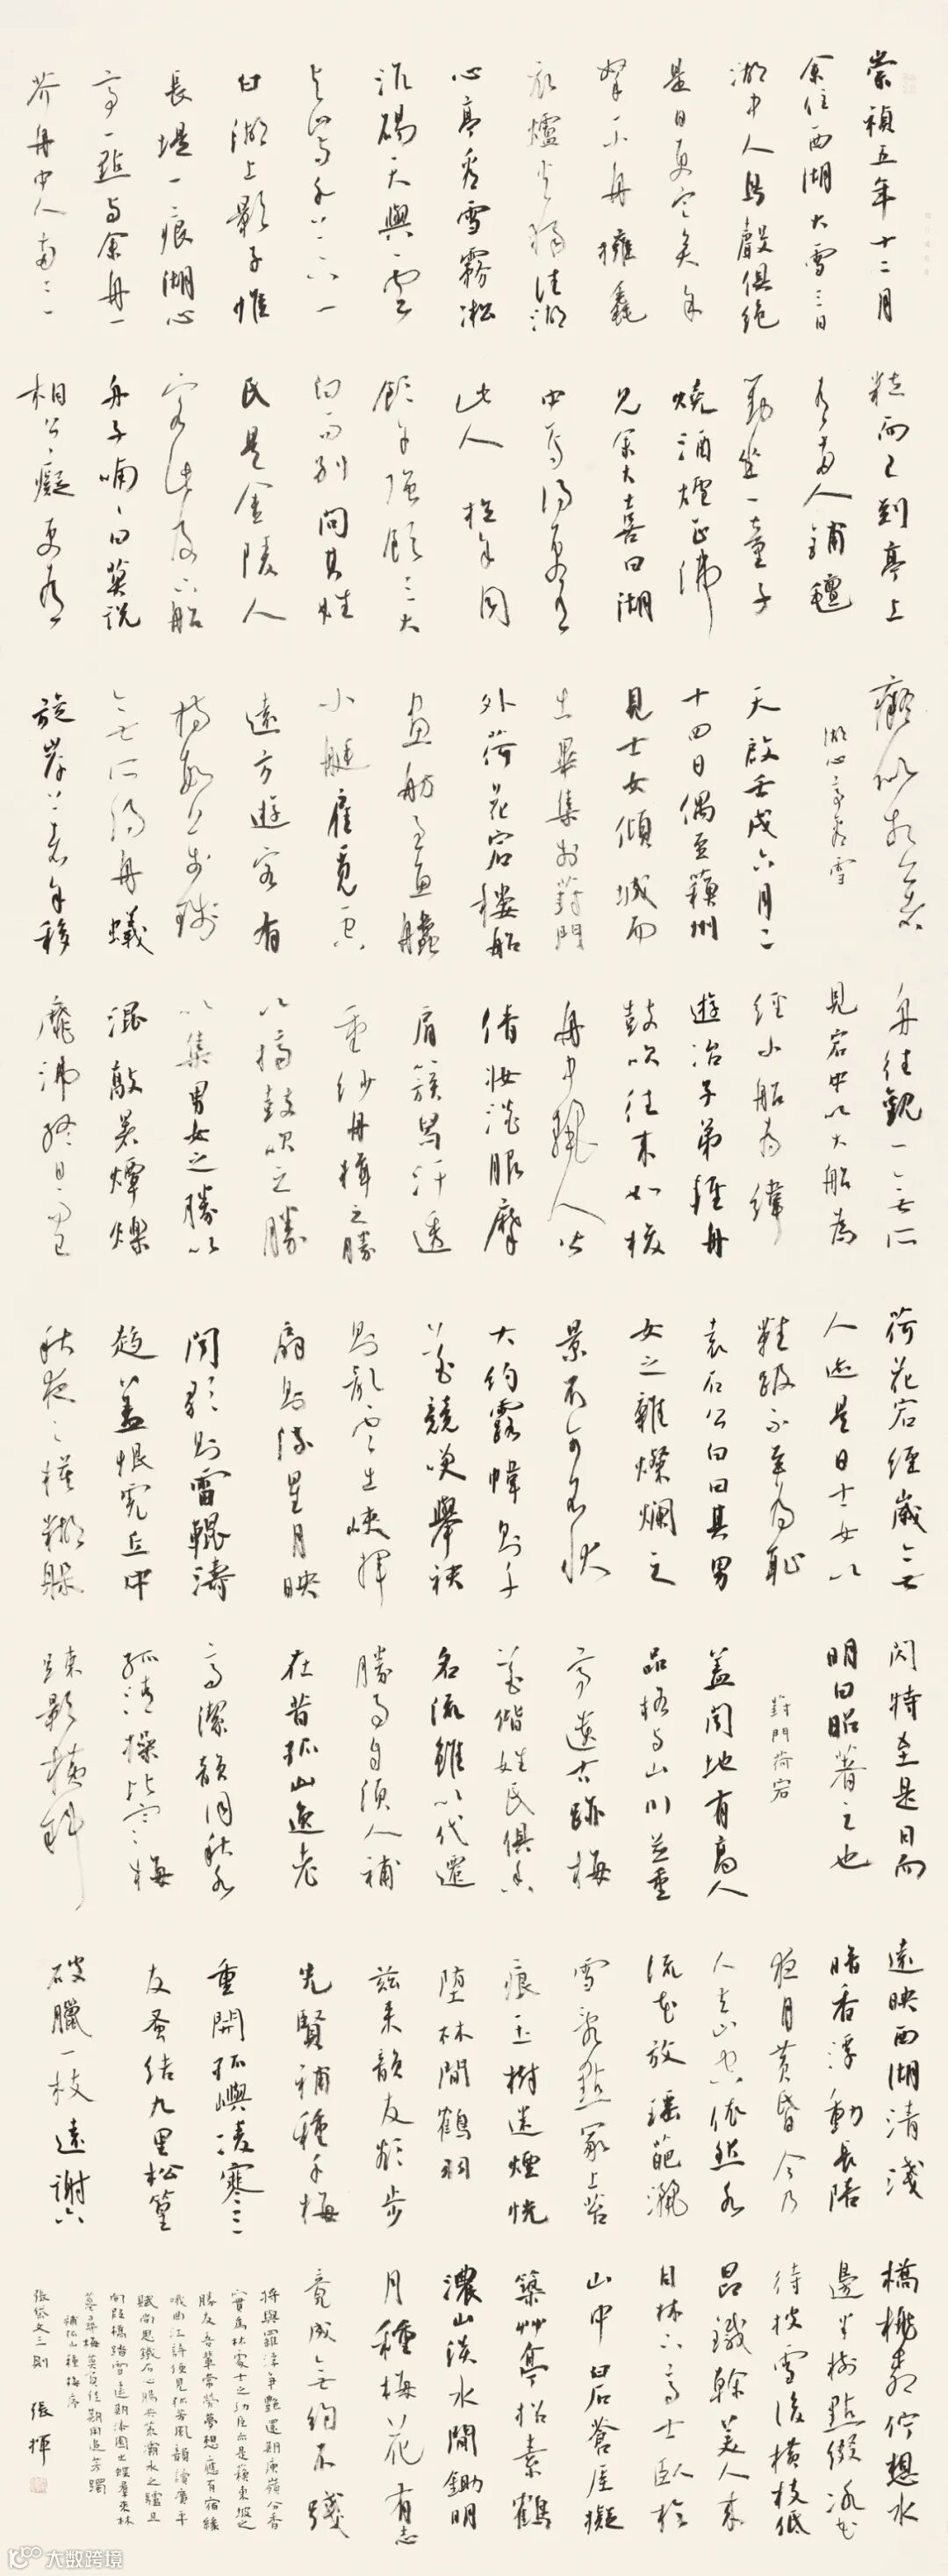 崇禎五年十二月
余住西湖大雪三日
湖中人鳥聲俱絕
是日更定矣余
拏一小舟擁毳
衣爐火獨往湖
心亭看雪霧凇
沆碭天與雲
與山與水上下一
白湖上影子惟
長堤一痕湖心
亭一點與余舟一
芥舟中人兩三
粒而已到亭上
有兩人鋪氈
對坐一童子
燒酒爐正沸
見余大喜曰湖
中焉得更有
此人拉余同
飲余強飲三大
白而別問其姓
氏是金陵人
客此及下船
舟子喃喃曰莫說
相公癡更有
癡似相公者
湖心亭看雪
天啟壬戌六月二
十四日偶至蘇州
見士女傾城而
出畢集於葑門
外荷花宕樓船
畫舫至魚艖
小艇雇覓一空
遠方遊客有
持數萬錢
無所得舟蟻
旋岸上者余移
舟往觀一無所
見宕中以大船為
經小船為緯
遊冶子弟輕舟
鼓吹往來如梭
舟中麗人皆
倩妝淡服摩
肩簇舄汗透
重紗舟楫之勝
以擠鼓吹之勝
以集男女之勝以
溷歊暑燂爍
靡沸終日而已
荷花宕經歲無
人跡是日士女以
鞋靸不至為恥
袁石公曰其男
女之雜燦爛之
景不可名狀
大約露幃則千
花競笑舉袂
則亂雲出峽揮
扇則流星月映
聞歌則雷輥濤
趨蓋恨虎丘中
秋夜之模糊躲
閃特至是日而
明白昭著之也
葑門荷宕
蓋聞地有高人
品格與山川並重
亭遺古跡梅
花偕姓氏俱香
名流雖以代遷
勝事自須人補
在昔孤山逸老
高潔韻同秋水
孤清操比寒梅
疎影橫斜
遠映西湖清淺
暗香浮動長陪
夜月黃昏今乃
人去山空依然水
流花放瑤葩灑
雪亂點冢上苔
痕玉樹迷煙恍
墮林間鶴羽
茲來韻友欲步
先賢補種千梅
重開孤嶼凌寒三
友蚤結九里松篁
破臘一枝遠謝六
橋桃柳佇想水
邊半樹點綴冰花
待披雪後橫枝低
昂鐵幹美人來
自林下高士臥於
山中白石蒼崖擬
築艸亭招素鶴
濃山淡水閒鋤明
月種梅花有志
竟成無約不踐
將與羅浮爭艷還期庾嶺分香
實為林處士之功臣亦是蘇東坡之
勝友吾輩常勞夢想應有宿緣
哦曲江詩便見孤芳風韻讀廣平
賦尚思鐵石心腸共策灞水之驢且
向段橋踏雪遙期漆園之蝶羣來林
墓尋梅莫負佳期用追芳躅
補孤山種梅序
張岱文三則 張揮
大数跨境